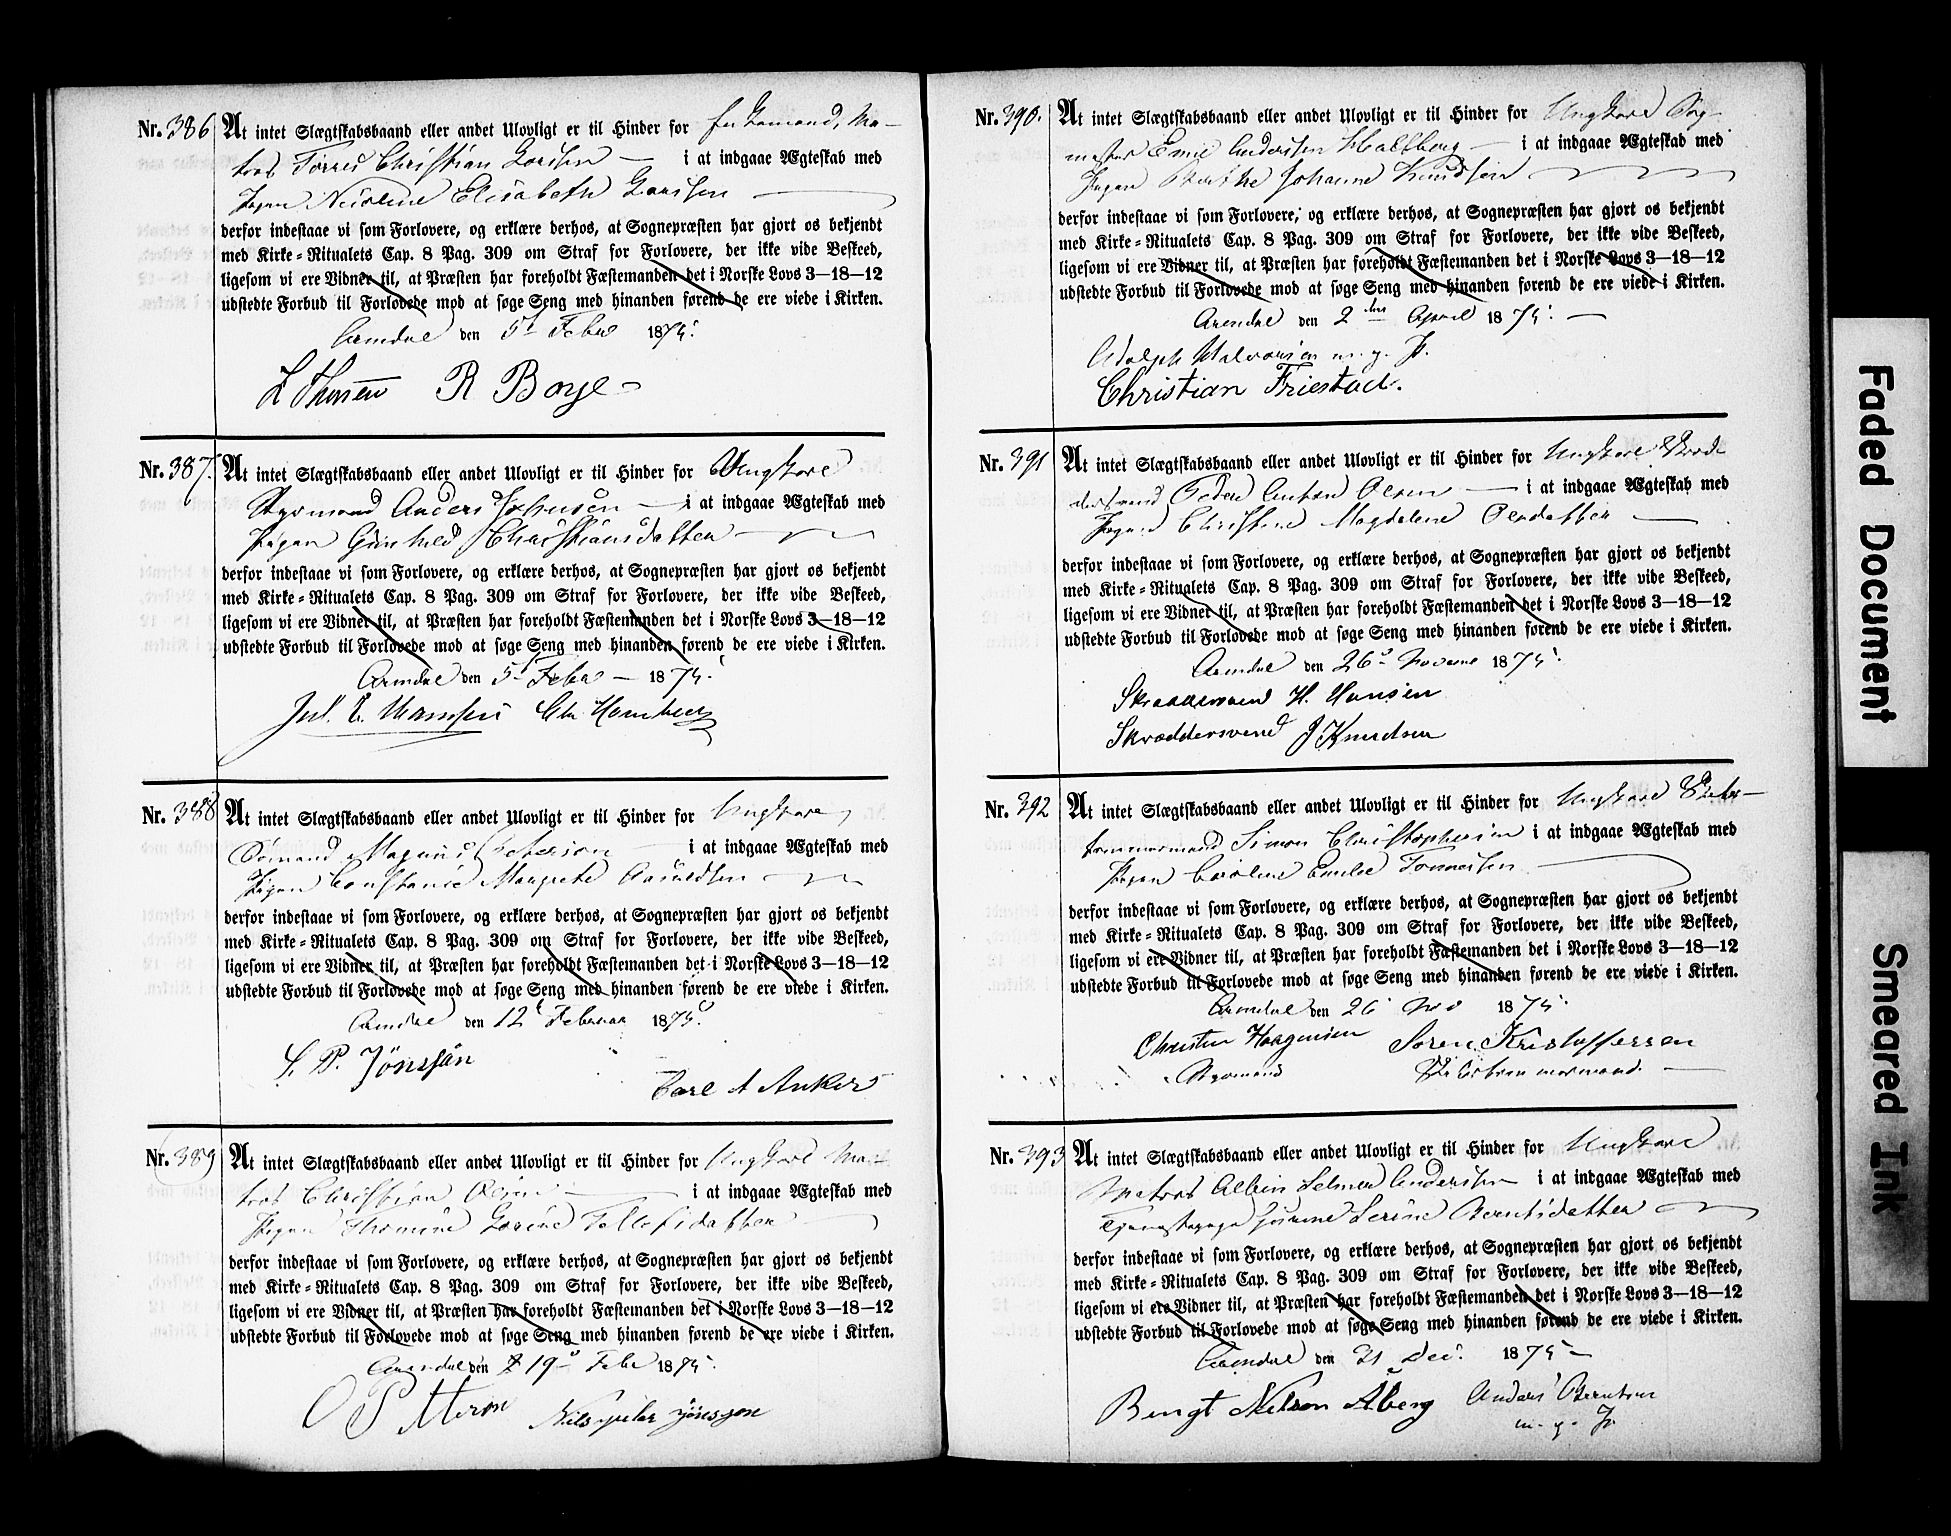 Nr. 386 At intet Slægtskabsbaand eller andet Ulovligt er til Hinder for Ma-
tros Torres Christian Larsen — i at indgaae Ægteskab med
Pigen Elisabeth Larsen —
derfor indestaae vi som Forlovere, og erklære derhos, at Sognepræsten har gjort os bekjendt
med Kirke-Ritualets Cap. 8 Pag. 309 om Straf for Forlovere, der ikke vide Beskeed,
ligesom vi ere Vidner til, at Præsten har foreholdt Fæstemanden det i Norske Lovs 3—18—12
udstedte Forbud til Forlovede mod at søge Seng med hinanden førend de ere viede i Kirken.
Arendal den 5t Febr 1875.
R Boye
Nr. 387. At intet Slægtskabsbaand eller andet Ulovligt er til Hinder for Ungkarl
Styrmand Anders Johnsen — i at indgaae Ægteskab med
Pigen Gunhild Christiansdatter —
derfor indestaae vi som Forlovere, og erklære derhos, at Sognepræsten har gjort os bekjendt
med Kirke-Ritualets Cap. 8 Pag. 309 om Straf for Forlovere, der ikke vide Beskeed,
ligesom vi ere Vidner til, at Præsten har foreholdt Fæstemanden det i Norske Lovs 3—18—12
udstedte Forbud til Forlovede mod at søge Seng med hinanden førend de ere viede i Kirken.
Arendal den 5t Febr — 1875.
Nr. 388 At intet Slægtskabsbaand eller andet Ulovligt er til Hinder for Ungkarl
Sømand Magnus Peterson i at indgaae Ægteskab med
Pigen Constance Margrete —
derfor indestaae vi som Forlovere, og erklære derhos, at Sognepræsten har gjort os bekjendt
med Kirke-Ritualets Cap. 8 Pag. 309 om Straf for Forlovere, der ikke vide Beskeed,
ligesom vi ere Vidner til, at Præsten har foreholdt Fæstemanden det i Norske Lovs 3—18—12
udstedte Forbud til Forlovede mod at søge Seng med hinanden førend de ere viede i Kirken.
Arendal den 12t Februar 1875.
P. Jönssön
Carl A Ankers
Nr. 389 At intet Slægtskabsbaand eller andet Ulovligt er til Hinder for Ungkarl Ma-
tros Christian — i at indgaae Ægteskab med
Pigen Thomine Tellefsdatter —
derfor indestaae vi som Forlovere, og erklære derhos, at Sognepræsten har gjort os bekjendt
med Kirke-Ritualets Cap. 8 Pag. 309 om Straf for Forlovere, der ikke vide Beskeed,
ligesom vi ere Vidner til, at Præsten har foreholdt Fæstemanden det i Norske Lovs 3—18—12
udstedte Forbud til Forlovede mod at søge Seng med hinanden førend de ere viede i Kirken.
Arendal den 19 Febr 1875.
Nils peter jönsson
Nr. 390. At intet Slægtskabsbaand eller andet Ulovligt er til Hinder for Ungkarl
Andersen i at indgaae Ægteskab med
Pigen Johanne Knudsen
derfor indestaae vi som Forlovere, og erklære derhos, at Sognepræsten har gjort os bekjendt
med Kirke-Ritualets Cap. 8 Pag. 309 om Straf for Forlovere, der ikke vide Beskeed,
ligesom vi ere Vidner til, at Præsten har foreholdt Fæstemanden det i Norske Lovs 3—18—12
udstedte Forbud til Forlovede mod at søge Seng med hinanden førend de ere viede i Kirken.
Arendal den 2den April 1875. —
Adolph Halvorsen m. p. P.
Christian Friestad.
Nr. 391 At intet Slægtskabsbaand eller andet Ulovligt er til Hinder for Ungkarl
Peder Anton Olsen — i at indgaae Ægteskab med
Pigen Christine Magdalene Olsdatter —
derfor indestaae vi som Forlovere, og erklære derhos, at Sognepræsten har gjort os bekjendt
med Kirke-Ritualets Cap. 8 Pag. 309 om Straf for Forlovere, der ikke vide Beskeed,
ligesom vi ere Vidner til, at Præsten har foreholdt Fæstemanden det i Norske Lovs 3—18—12
udstedte Forbud til Forlovede mod at søge Seng med hinanden førend de ere viede i Kirken.
Arendal den 26 1875.
Skræddersvend H. Hansen
Skræddersvend J Knudsen
Nr. 392 At intet Slægtskabsbaand eller andet Ulovligt er til Hinder for Ungkarl
Simon Christophersen i at indgaae Ægteskab med
Pigen Emilie Tønnesen
derfor indestaae vi som Forlovere, og erklære derhos, at Sognepræsten har gjort os bekjendt
med Kirke-Ritualets Cap. 8 Pag. 309 om Straf for Forlovere, der ikke vide Beskeed,
ligesom vi ere Vidner til, at Præsten har foreholdt Fæstemanden det i Norske Lovs 3—18—12
udstedte Forbud til Forlovede mod at søge Seng med hinanden førend de ere viede i Kirken.
Arendal den 26 Nov 1875.
Christen Haagensen Soren Kristoffersen
Styrmand
Nr. 393 At intet Slægtskabsbaand eller andet Ulovligt er til Hinder for Ungkarl
Matros Albin Selmer Andersen — i at indgaae Ægteskab med
Serine Berntsdatter —
derfor indestaae vi som Forlovere, og erklære derhos, at Sognepræsten har gjort os bekjendt
med Kirke-Ritualets Cap. 8 Pag. 309 om Straf for Forlovere, der ikke vide Beskeed,
ligesom vi ere Vidner til, at Præsten har foreholdt Fæstemanden det i Norske Lovs 3—18—12
udstedte Forbud til Forlovede mod at søge Seng med hinanden førend de ere viede i Kirken.
Arendal den 31 Dec. 1875 —
Bengt Nelson Åberg Anders Berntsen
m. p. P
Faded Document
Smeared Ink